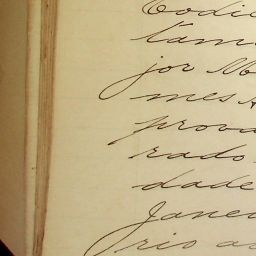 Codic
tam
jor M
mes A
prova
rado
dade
Janei
rio a